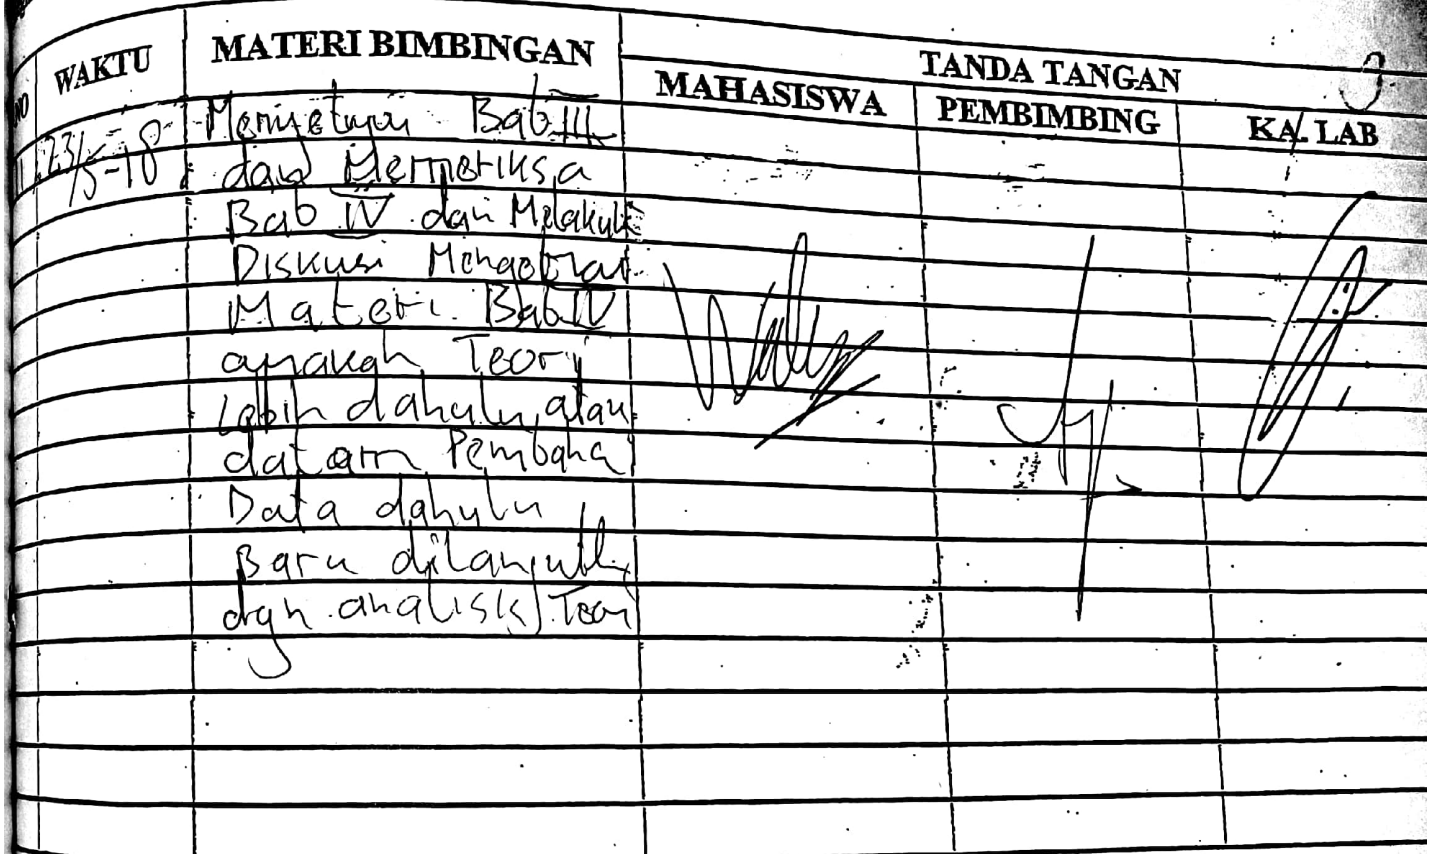 NO WAKTU MATERI BIMBINGAN TANDA TANGAN
MAHASISWA PEMBIMBING KA. LAB
23/5-18 Menyetujui Bab III
dan Memeriksa
Bab IV dan Melakuk
Diskusi Mengenai
Materi Bab IV
apakah Teory
Lebih dahulu atau
dalam Pembaha
Data dahulu
Baru dilanjutk
dgn analisis Teori